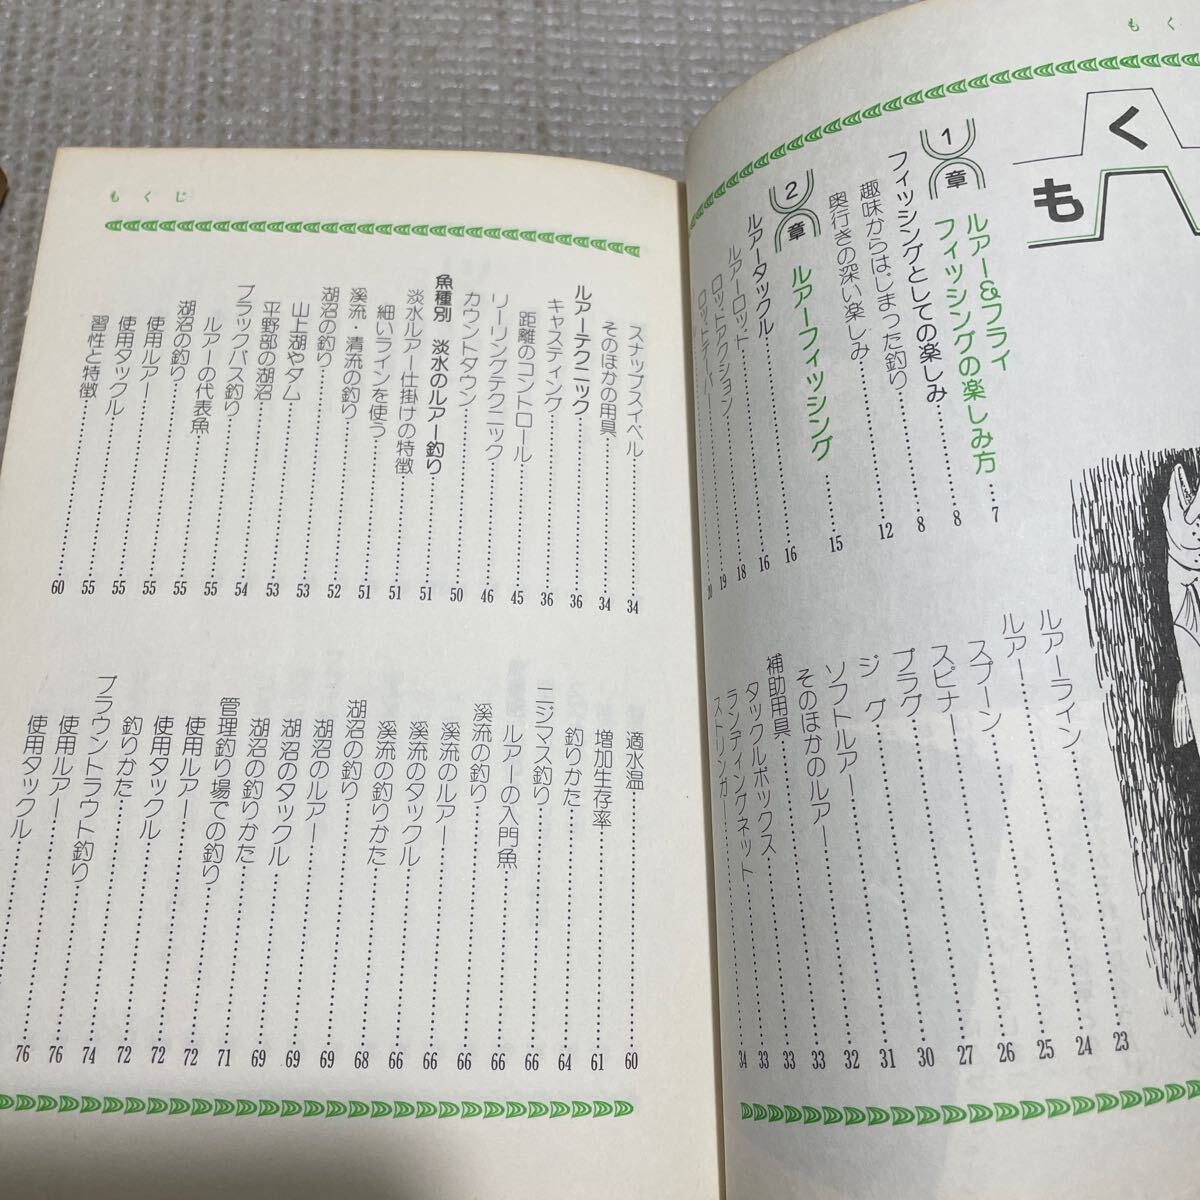 もく
もく
1章 ルアー&フライ
フィッシングの楽しみ方 7
フィッシングとしての楽しみ 8
趣味からはじまった釣り 8
奥行きの深い楽しみ 12
2章 ルアーフィッシング 15
ルアータックル 16
ルアーロッド 16
ロッドアクション 18
ロッドテーパー 19
20
ルアーライン 23
ルアー 24
スプーン 25
スピナー 26
プラグ 27
ジグ 30
ソフトルアー 31
そのほかのルアー 32
補助用具 33
タックルボックス 33
ランディングネット 33
ストリンガー 34
もくじ
スナップスイベル 34
そのほかの用具 34
ルアーテクニック 36
キャスティング 36
距離のコントロール 45
リーリングテクニック 46
カウントダウン 50
魚種別 淡水のルアー釣り 51
淡水ルアー仕掛けの特徴 51
細いラインを使う 51
渓流・清流の釣り 52
湖沼の釣り 53
山上湖やダム 53
平野部の湖沼 54
ブラックバス釣り 55
ルアーの代表魚 55
湖沼の釣り 55
使用ルアー 55
使用タックル 55
習性と特徴 60
適水温 60
増加生存率 61
釣りかた 64
ニジマス釣り 66
ルアーの入門魚 66
渓流の釣り 66
渓流のルアー 66
渓流のタックル 66
渓流の釣りかた 66
湖沼の釣り 68
湖沼のルアー 69
湖沼のタックル 69
湖沼の釣りかた 69
管理釣り場での釣り 71
使用ルアー 72
使用タックル 72
釣りかた 72
ブラウントラウト釣り 74
使用ルアー 76
使用タックル 76